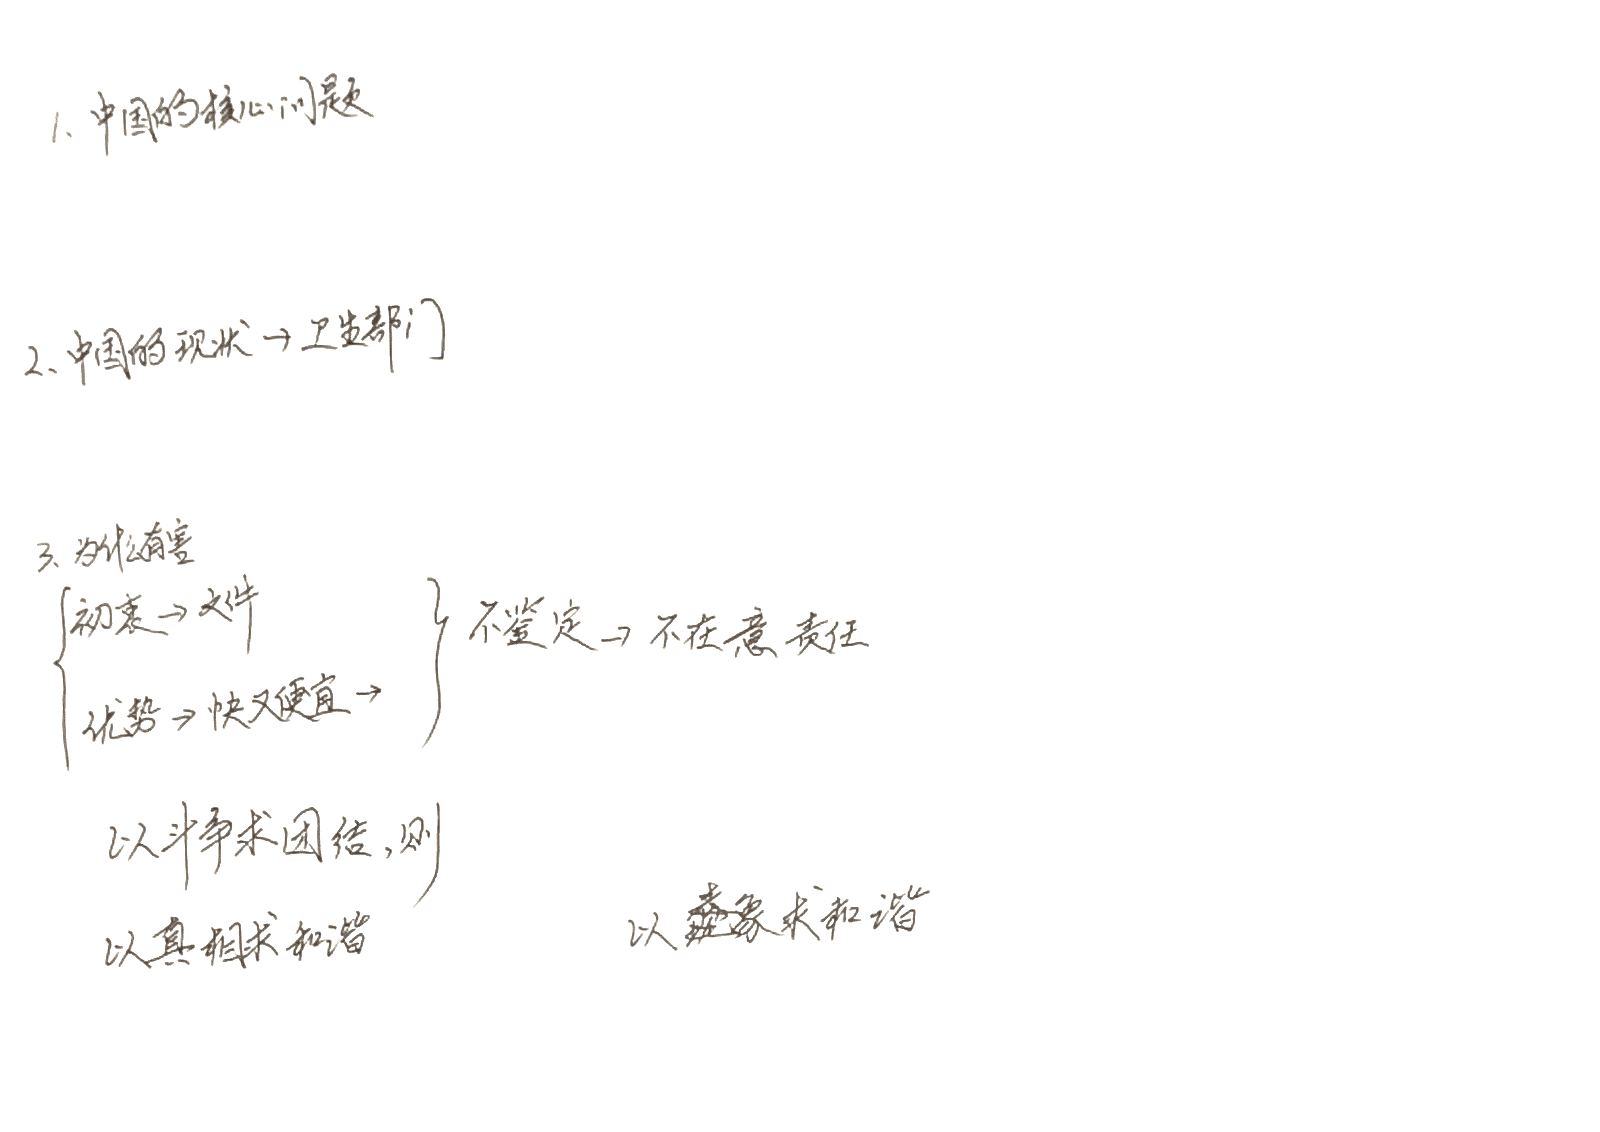 1、中国的核心问题
2、中国的现状→卫生部门
3、为什么有害
初衷→文件
优势→快又便宜→
不鉴定→不在意责任
以斗争求团结,则
以真相求和谐
以象求和谐